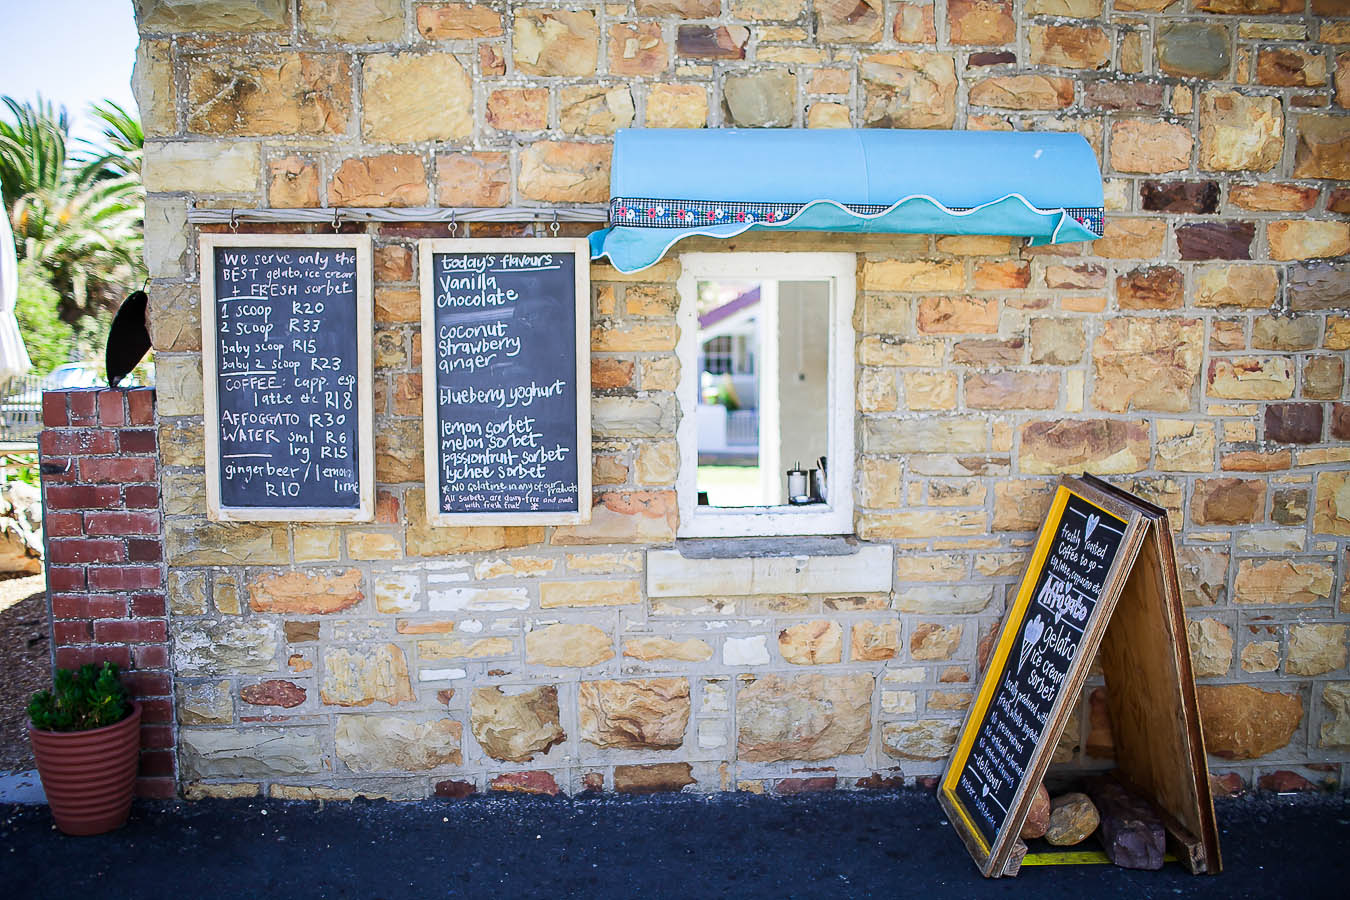 We serve only the
BEST gelato, ice cream
+ FRESH sorbet
1 scoop R20
2 scoop R33
baby scoop R15
baby 2 scoop R23
COFFEE: capp. esp
latte etc R18
AFFOGGATO R30
WATER sml R6
lrg R15
gingerbeer / lemon
lime
R10
today's flavours
Vanilla
Chocolate
Coconut
Strawberry
ginger
blueberry yoghurt
lemon sorbet
melon sorbet
passionfruit sorbet
lychee sorbet
* NO Gelatine in any of our products
All Sorbets are dairy-free and made
* with fresh fruit *
freshly roasted
Coffee to go -
Affogato
gelato
ice cream
Sorbet
locally produced with
fresh, whole ingredients
No preservatives
No artificial colourants
No artificial flavouring
-delicious!